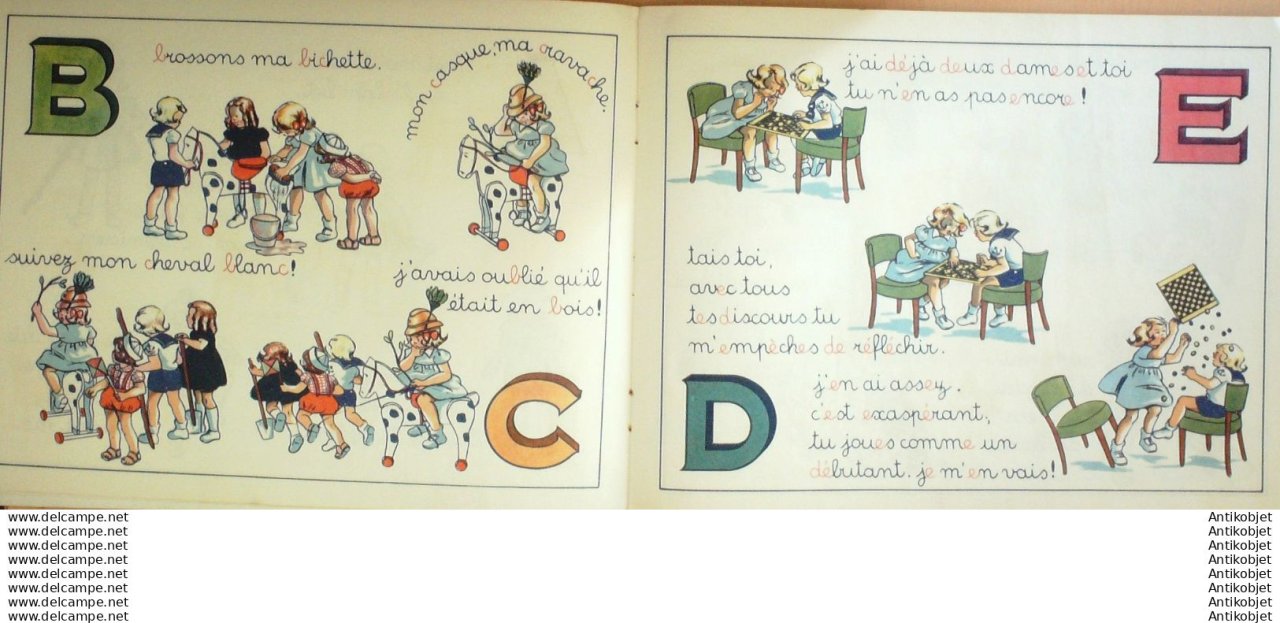 B
brossons ma bichette.
mon casque, ma cravache.
suivez mon cheval blanc!
j'avais oublié qu'il
était en bois!
C
j'ai déjà deux dames et toi
tu n'en as pas encore!
E
tais toi,
avec tous
tes discours tu
m'empèches de réfléchir.
D
j'en ai assez,
c'est exaspérant,
tu joues comme un
débutant. je m'en vais!
www.delcampe.net
www.delcampe.net
www.delcampe.net
www.delcampe.net
www.delcampe.net
www.delcampe.net
www.delcampe.net
www.delcampe.net
Antikobjet
Antikobjet
Antikobjet
Antikobjet
Antikobjet
Antikobjet
Antikobjet
Antikobjet